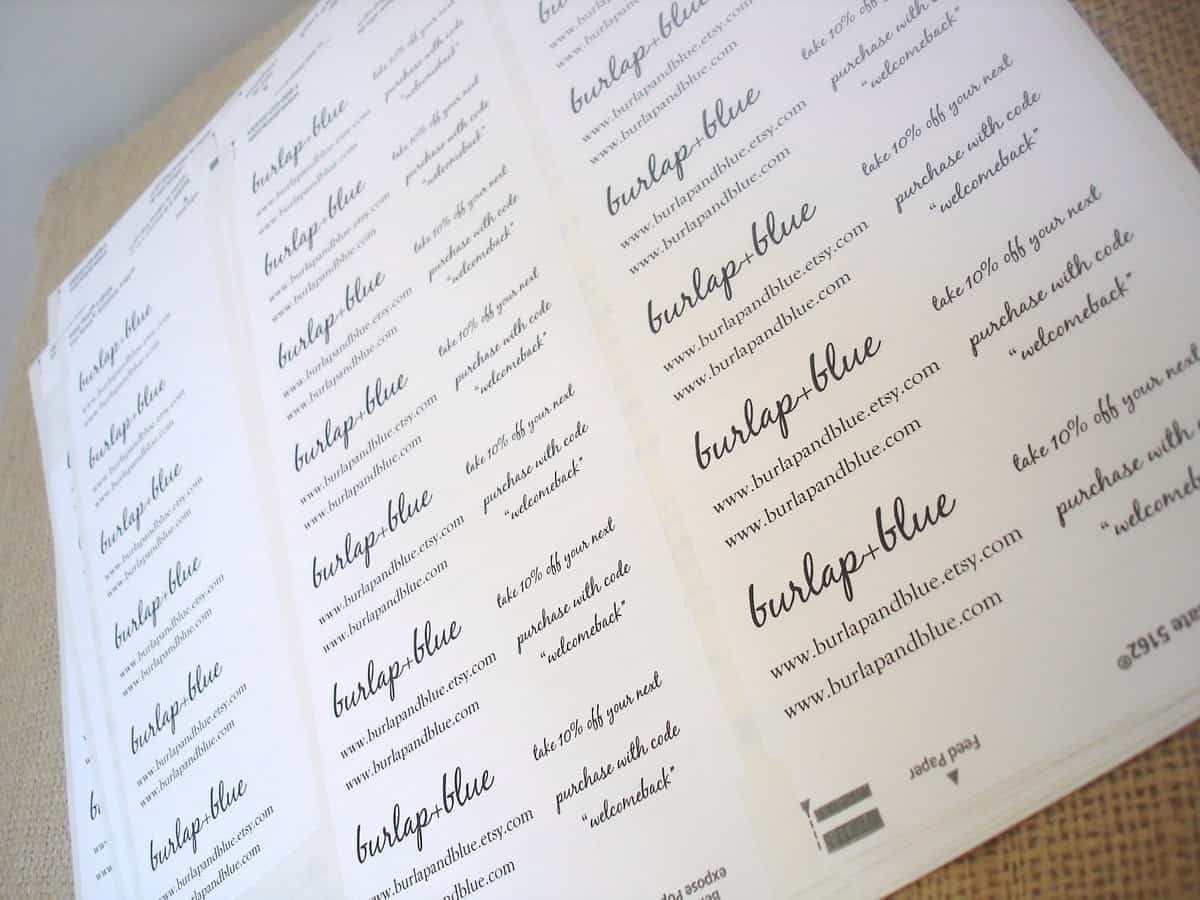 burlap+blue
www.burlapandblue.etsy.com
www.burlapandblue.com
burlap+blue
www.burlapandblue.etsy.com
www.burlapandblue.com
burlap+blue
www.burlapandblue.etsy.com
www.burlapandblue.com
burlap+blue
www.burlapandblue.etsy.com
www.burlapandblue.com
burlap+blue
www.burlapandblue.etsy.com
www.burlapandblue.com
burlap+blue
www.burlapandblue.etsy.com
www.burlapandblue.com
burlap+blue
www.burlapandblue.etsy.com
www.burlapandblue.com
take 10% off your next
purchase with code
"welcomeback"
burlap+blue
www.burlapandblue.etsy.com
www.burlapandblue.com
take 10% off your next
purchase with code
"welcomeback"
burlap+blue
www.burlapandblue.etsy.com
www.burlapandblue.com
take 10% off your next
purchase with code
"welcomeback"
burlap+blue
www.burlapandblue.etsy.com
www.burlapandblue.com
take 10% off your next
purchase with code
"welcomeback"
burlap+blue
www.burlapandblue.etsy.com
www.burlapandblue.com
take 10% off your next
purchase with code
"welcomeback"
burlap+blue
www.burlapandblue.etsy.com
www.burlapandblue.com
take 10% off your next
purchase with code
"welcomeback"
burlap+blue
www.burlapandblue.etsy.com
www.burlapandblue.com
take 10% off your next
purchase with code
"welcomeback"
expose
burlap+blue
www.burlapandblue.etsy.com
www.burlapandblue.com
burlap+blue
www.burlapandblue.etsy.com
www.burlapandblue.com
take 10% off
purchase with code
"welcomeback"
burlap+blue
www.burlapandblue.etsy.com
www.burlapandblue.com
take 10% off your next
purchase with code
"welcomeback"
burlap+blue
www.burlapandblue.etsy.com
www.burlapandblue.com
take 10% off your next
purchase with code
"welcomeback"
burlap+blue
www.burlapandblue.etsy.com
www.burlapandblue.com
take 10% off your next
purchase with
"welcomeb
5162®
Feed Paper